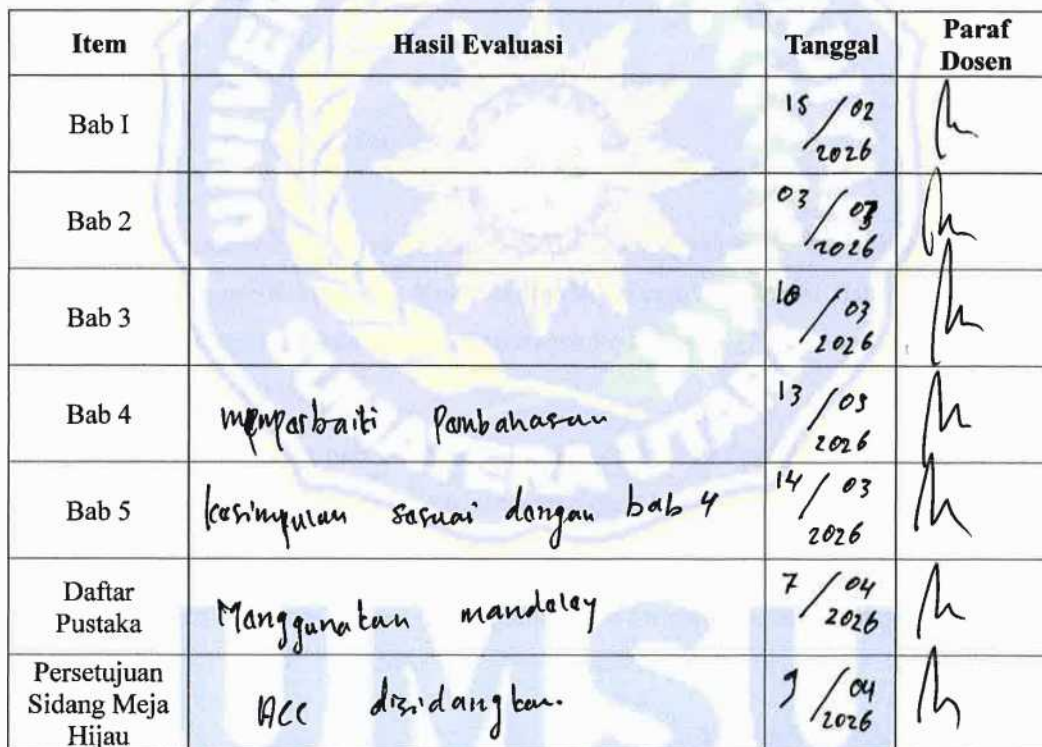 Item Hasil Evaluasi Tanggal Paraf Dosen
Bab I 15/02 2026
Bab 2 03/03 2026
Bab 3 10/03 2026
Bab 4 memperbaiki pembahasan 13/03 2026
Bab 5 kesimpulan sesuai dengan bab 4 14/03 2026
Daftar Pustaka Menggunakan mendeley 7/04 2026
Persetujuan Sidang Meja Hijau ACC disidangkan. 9/04 2026
UMSU
SUMATERA UTARA